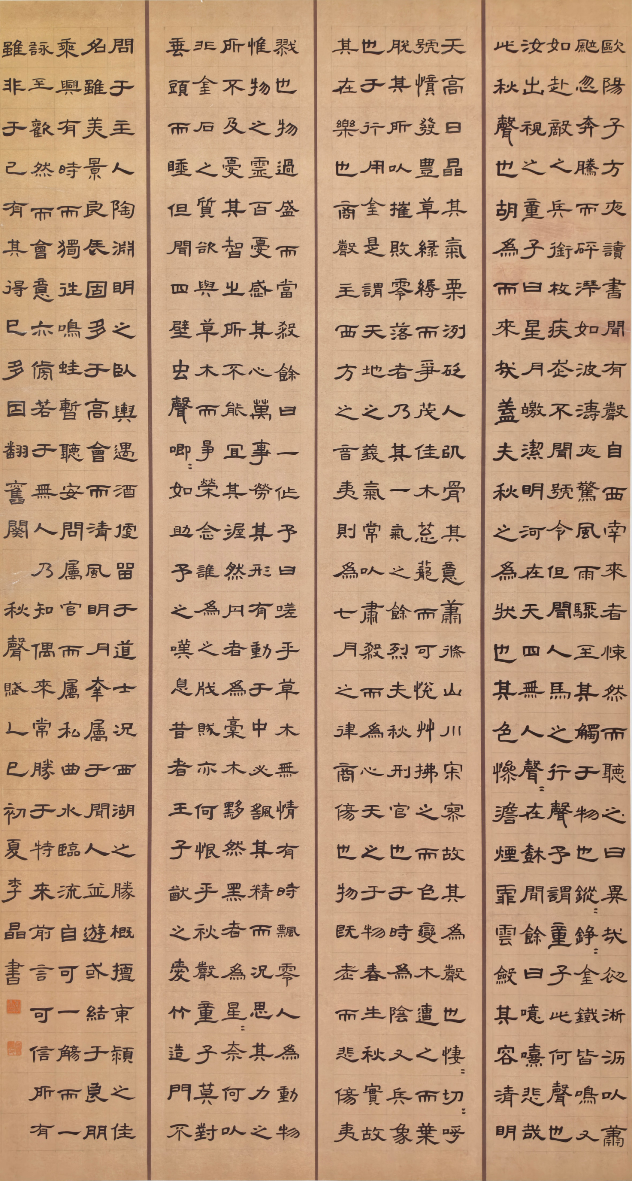 歐陽子方夜讀書聞有聲自西南來者悚然而聽之曰異哉初淅瀝以蕭
颯忽奔騰而砰湃如波濤夜驚風雨驟至其觸于物也鏦〻錚〻金鐵皆鳴又
如赴敵之兵銜枚疾走不聞號令但聞人馬之行聲予謂童子此何聲也
汝出視之童子曰星月皦潔明河在天四無人聲〻在林間餘曰噫嘻悲哉
此秋聲也胡為而來哉蓋夫秋之為狀也其色慘澹煙霏雲斂其容清明
天高日晶其氣栗冽砭人肌骨其意蕭條山川寂寥故其為聲也悽〻切〻呼
號憤發豐草綠縟而爭茂佳木蔥蘢而可悅艸拂之而色變木遭之而葉
脫其所以摧敗零落者乃其一氣之餘烈夫秋刑官也于時為陰又兵象
也于行用金是謂天地之義氣常以肅殺而為心天之于物春生秋實故
其在樂也商聲主西方之音夷則為七月之律商傷也物既老而悲傷夷
戮也物過盛而當殺餘曰一作予曰嗟乎草木無情有時飄零人為動物
惟物之靈百憂感其心萬事勞其形有動于中必搖其精而況思其力之
所不及憂其智之所不能宜其渥然丹者為槁木黟然黑者為星〻奈何以
非金石之質欲與草木而爭榮念誰為之戕賊亦何恨乎秋聲童子莫對
垂頭而睡但聞四壁虫聲唧〻如助予之嘆息昔者王子猷之愛竹造門不
問于主人陶淵明之臥輿遇酒便留于道士況西湖之勝概擅東潁之佳
名雖美景良辰固多于高會而清風明月幸屬于閒人並遊或結于良朋
乘興有時而獨往鳴蛙暫聽安問屬官而屬私曲水臨流自可一觴而一
詠至歡然而會意亦傍若于無人乃知偶來常勝于特來前言可信所有
雖非于己有其得已多因翻舊闋 秋聲賦乙巳初夏李晶書